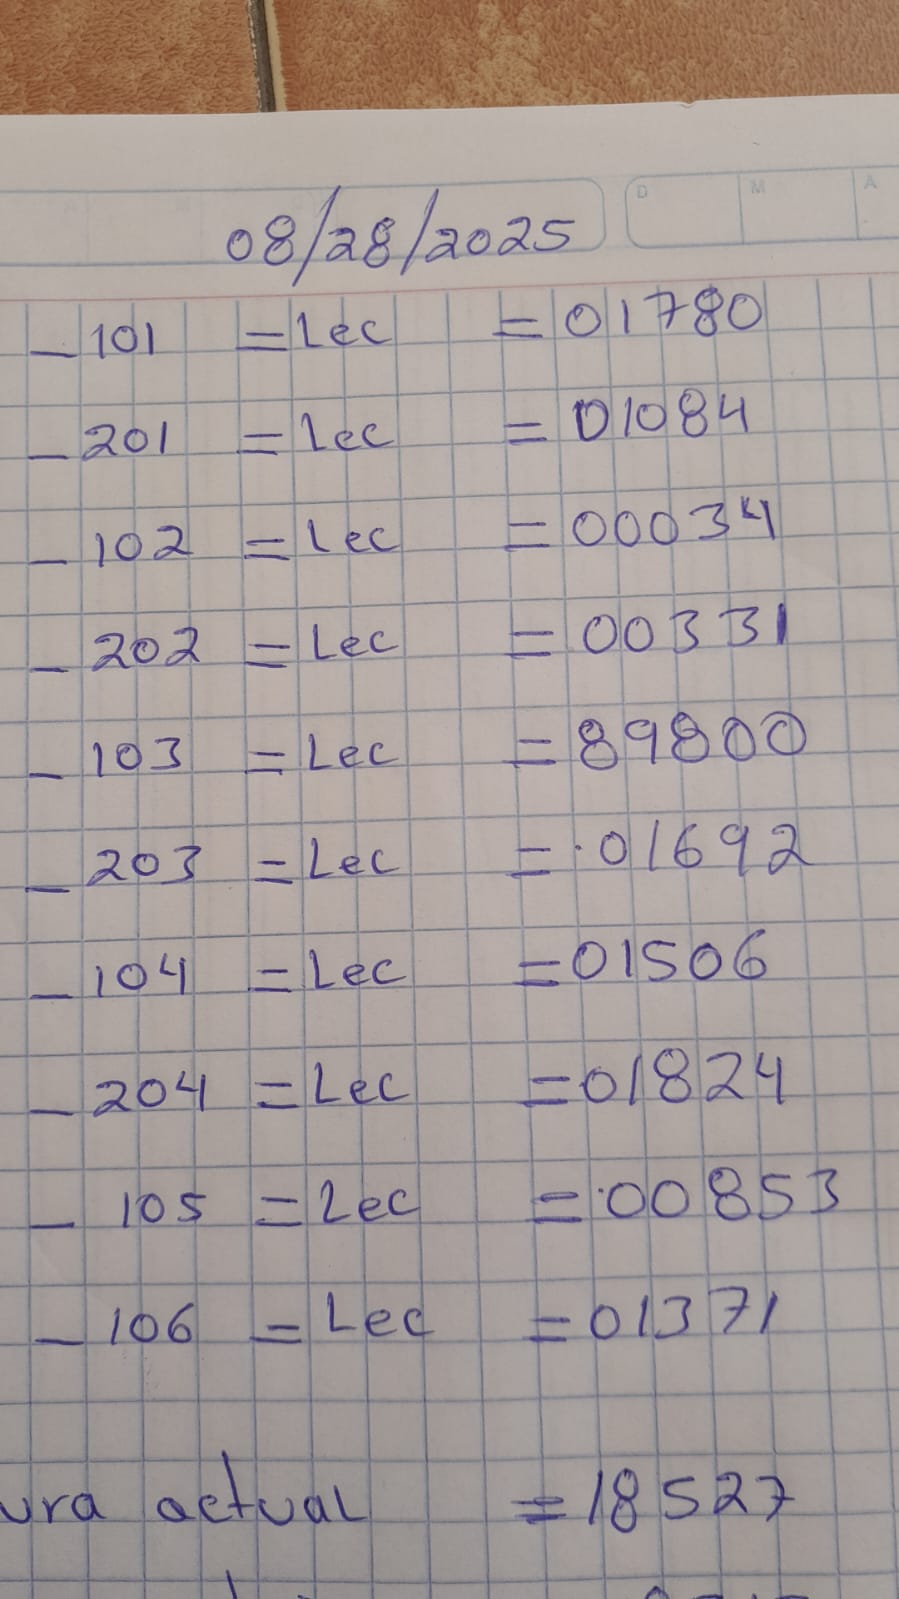 D M A
08/28/2025
- 101 = Lec = 01780
- 201 = Lec = 01084
- 102 = Lec = 00034
- 202 = Lec = 00331
- 103 = Lec = 89800
- 203 = Lec = 01692
- 104 = Lec = 01506
- 204 = Lec = 01824
- 105 = Lec = 00853
- 106 = Lec = 01371
ura actual = 18527